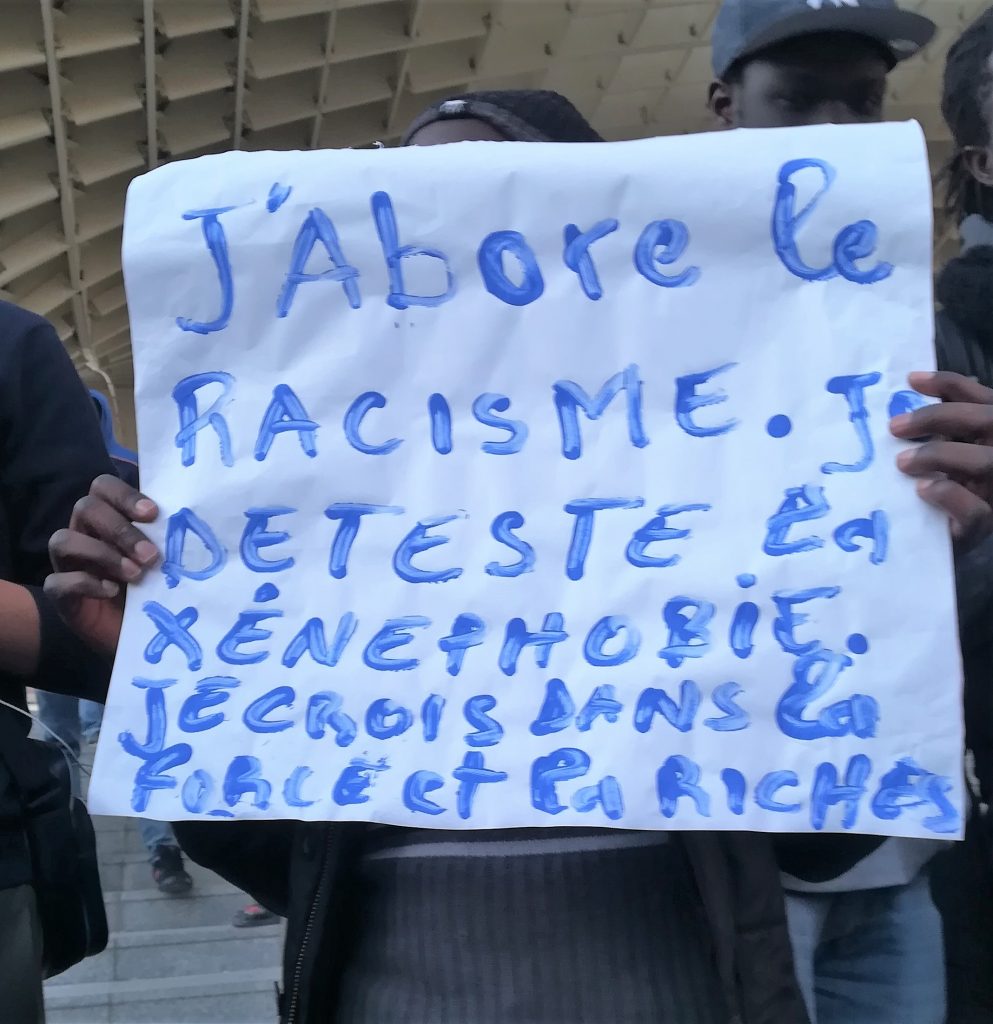 J'Abore le
RACISME. Je
DETESTE la
XĖNEPHOBIE.
JECROIS DANS la
FORCE et la RICHES